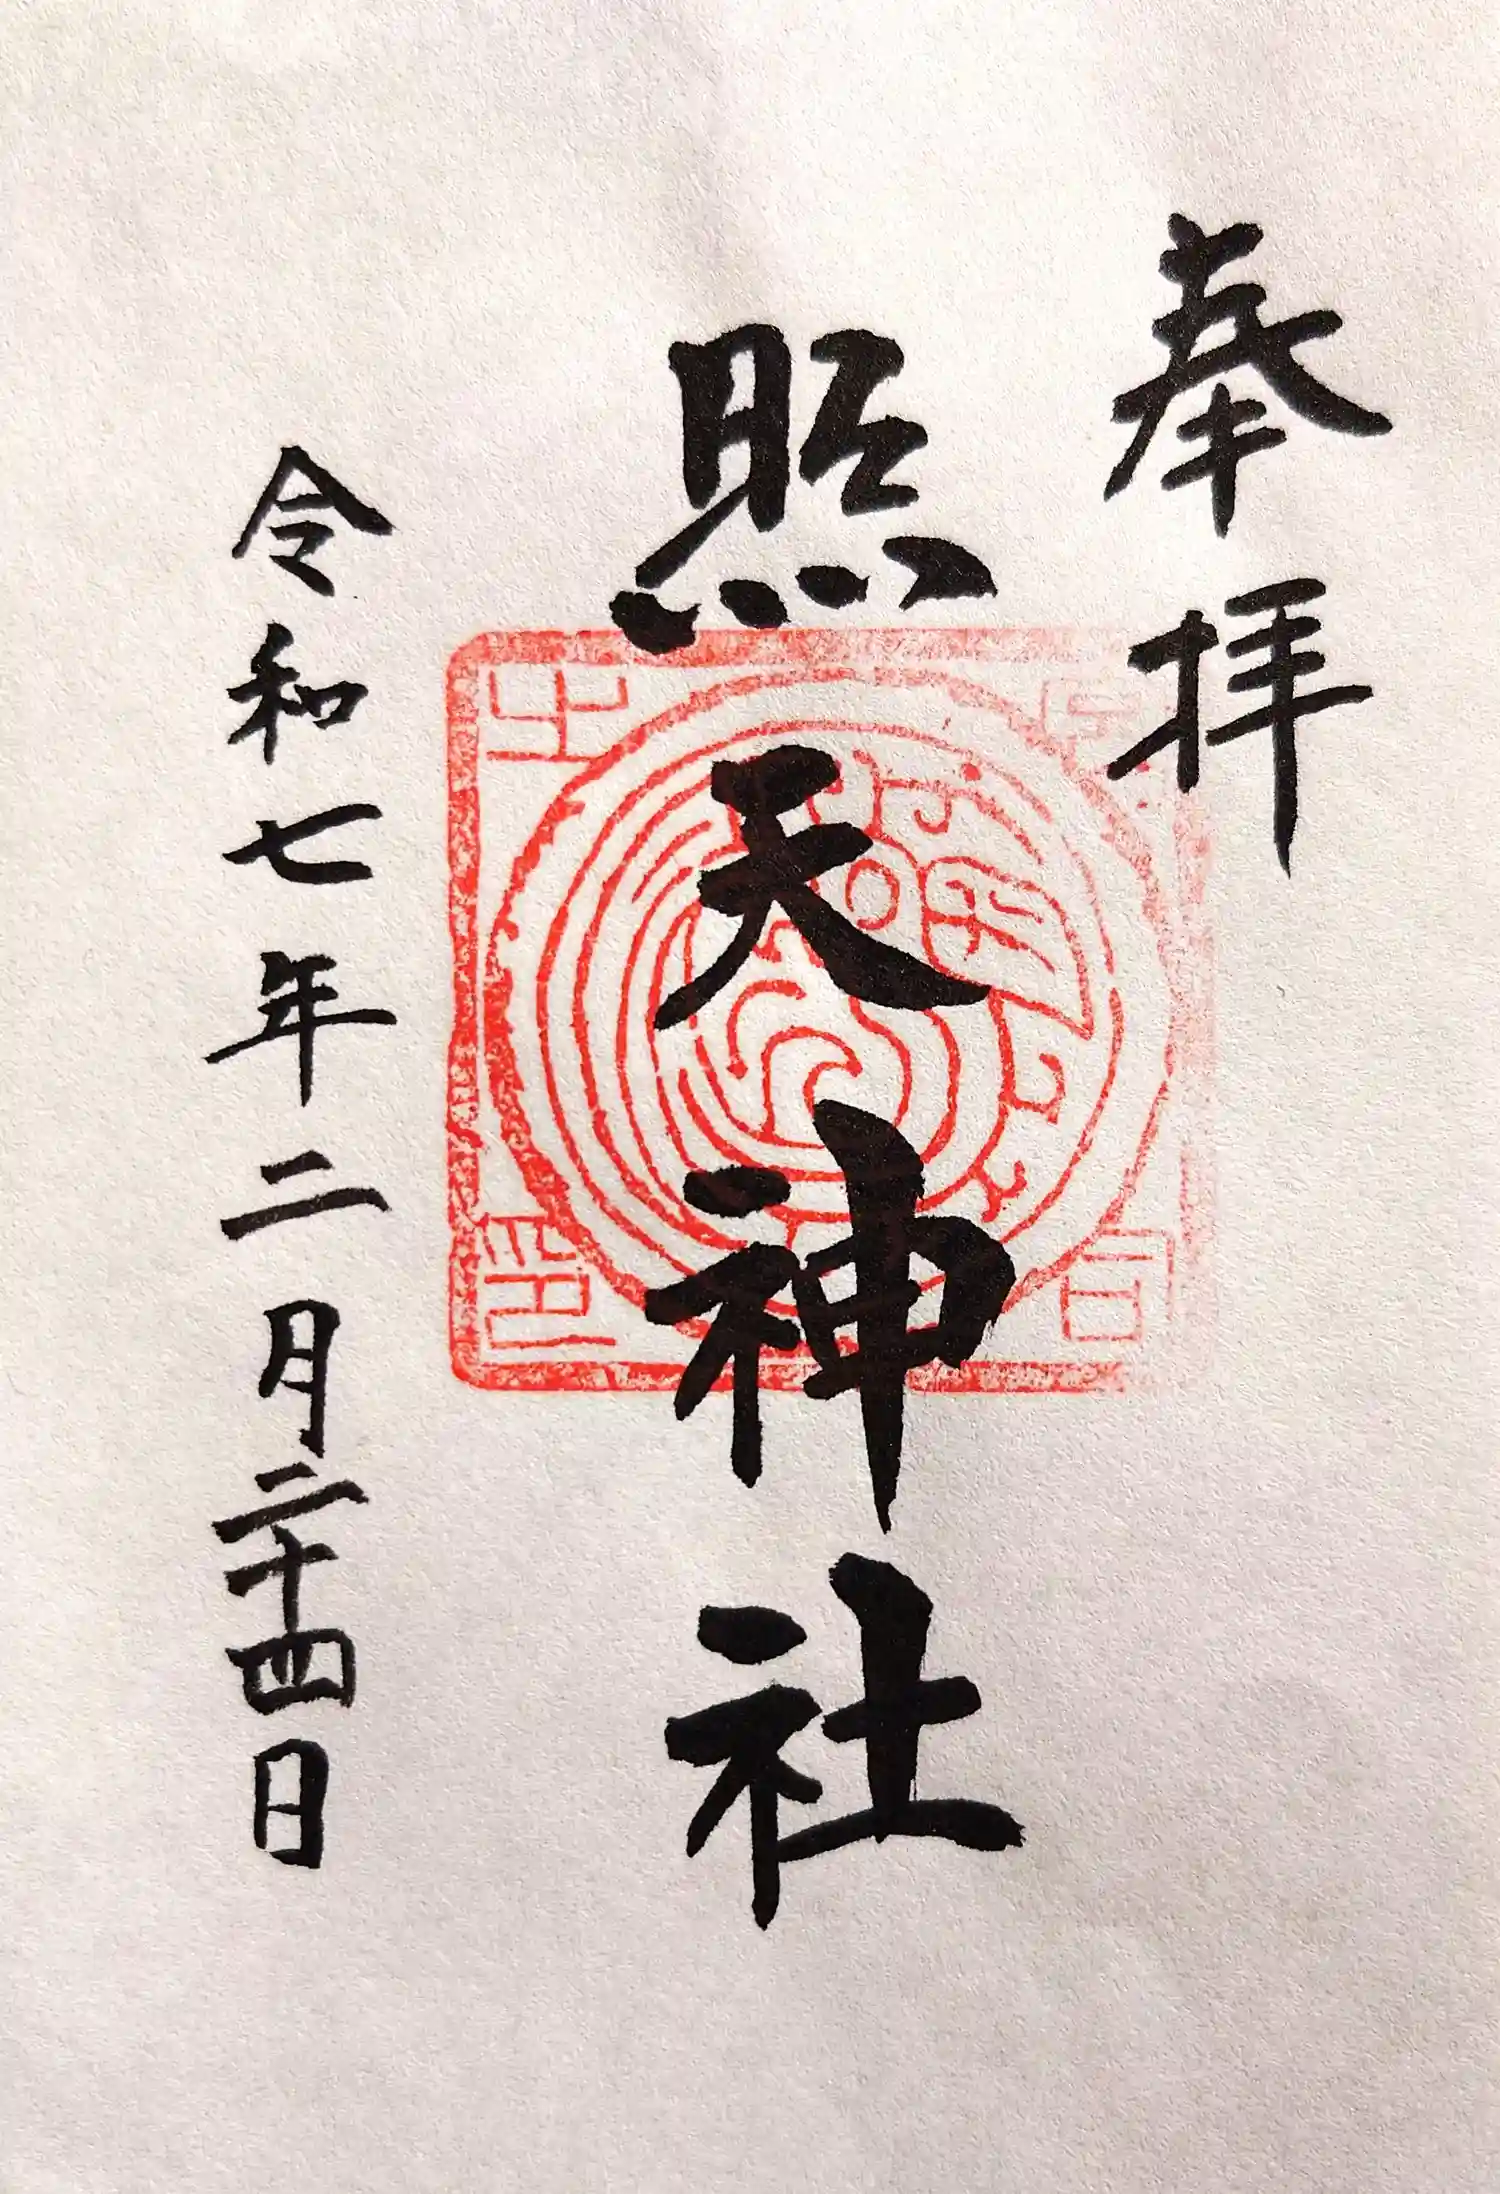 奉拝
照天神社
令和七年二月二十四日
宮司
之印